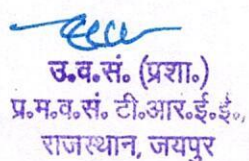 उ.व.सं. (प्रशा.)
प्र.म.व.सं. टी.आर.ई.ई.,
राजस्थान, जयपुर